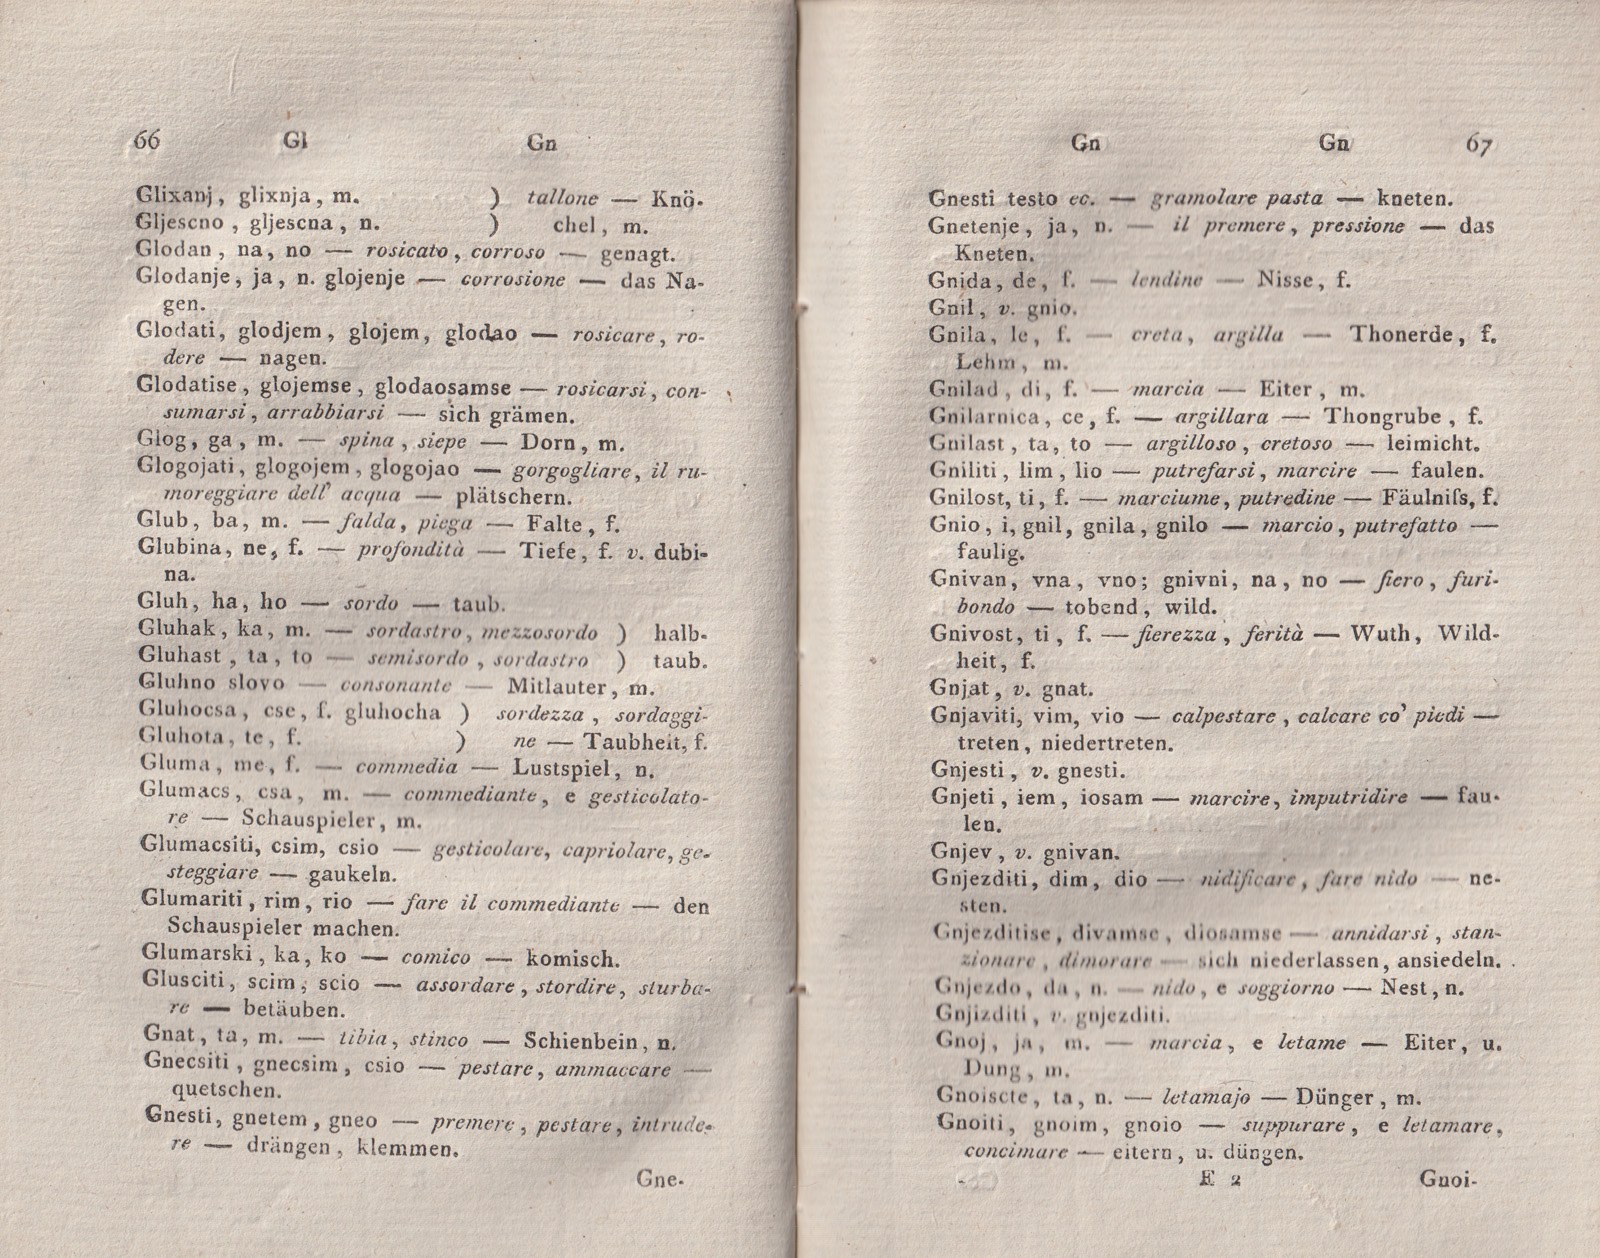 66 Gl Gn
Glixanj, glixnja, m. ) tallone — Knö-
Gljescno, gljescna, n. ) chel, m.
Glodan, na, no — rosicato, corroso — genagt.
Glodanje, ja, n. glojenje — corrosione — das Na-
gen.
Glodati, glodjem, glojem, glodao — rosicare, ro-
dere — nagen.
Glodatise, glojemse, glodaosamse — rosicarsi, con-
sumarsi, arrabbiarsi — sich grämen.
Glog, ga, m. — spina, siepe — Dorn, m.
Glogojati, glogojem, glogojao — gorgogliare, il ru-
moreggiare dell' acqua — plätschern.
Glub, ba, m. — falda, piega — Falte, f.
Glubina, ne, f. — profondità — Tiefe, f. v. dubi-
na.
Gluh, ha, ho — sordo — taub.
Gluhak, ka, m. — sordastro, mezzosordo ) halb-
Gluhast, ta, to — semisordo, sordastro ) taub.
Gluhno slovo — consonante — Mitlauter, m.
Gluhocsa, cse, f. gluhocha ) sordezza, sordaggi-
Gluhota, te, f. ) ne — Taubheit, f.
Gluma, me, f. — commedia — Lustspiel, n.
Glumacs, csa, m. — commediante, e gesticolato-
re — Schauspieler, m.
Glumacsiti, csim, csio — gesticolare, capriolare, ge-
steggiare — gaukeln.
Glumariti, rim, rio — fare il commediante — den
Schauspieler machen.
Glumarski, ka, ko — comico — komisch.
Glusciti, scim, scio — assordare, stordire, sturba-
re — betäuben.
Gnat, ta, m. — tibia, stinco — Schienbein, n.
Gnecsiti, gnecsim, csio — pestare, ammaccare —
quetschen.
Gnesti, gnetem, gneo — premere, pestare, intrude-
re — drängen, klemmen.
Gne-
Gn Gn 67
Gnesti testo ec. — gramolare pasta — kneten.
Gnetenje, ja, n. — il premere, pressione — das
Kneten.
Gnida, de, f. — lendine — Nisse, f.
Gnil, v. gnio.
Gnila, le, f. — creta, argilla — Thonerde, f.
Lehm, m.
Gnilad, di, f. — marcia — Eiter, m.
Gnilarnica, ce, f. — argillara — Thongrube, f.
Gnilast, ta, to — argilloso, cretoso — leimicht.
Gniliti, lim, lio — putrefarsi, marcire — faulen.
Gnilost, ti, f. — marciume, putredine — Fäulniſs, f.
Gnio, i, gnil, gnila, gnilo — marcio, putrefatto —
faulig.
Gnivan, vna, vno; gnivni, na, no — fiero, furi-
bondo — tobend, wild.
Gnivost, ti, f. — fierezza, ferità — Wuth, Wild-
heit, f.
Gnjat, v. gnat.
Gnjaviti, vim, vio — calpestare, calcare co' piedi —
treten, niedertreten.
Gnjesti, v. gnesti.
Gnjeti, iem, iosam — marcire, imputridire — fau-
len.
Gnjev, v. gnivan.
Gnjezditi, dim, dio — nidificare, fare nido — ne-
sten.
Gnjezditise, divamse, diosamse — annidarsi, stan-
zionare, dimorare — sich niederlassen, ansiedeln.
Gnjezdo, da, n. — nido, e soggiorno — Nest, n.
Gnjizditi, v. gnjezditi.
Gnoj, ja, m. — marcia, e letame — Eiter, u.
Dung, m.
Gnoiscte, ta, n. — letamajo — Dünger, m.
Gnoiti, gnoim, gnoio — suppurare, e letamare,
concimare — eitern, u. düngen.
E 2 Gnoi-